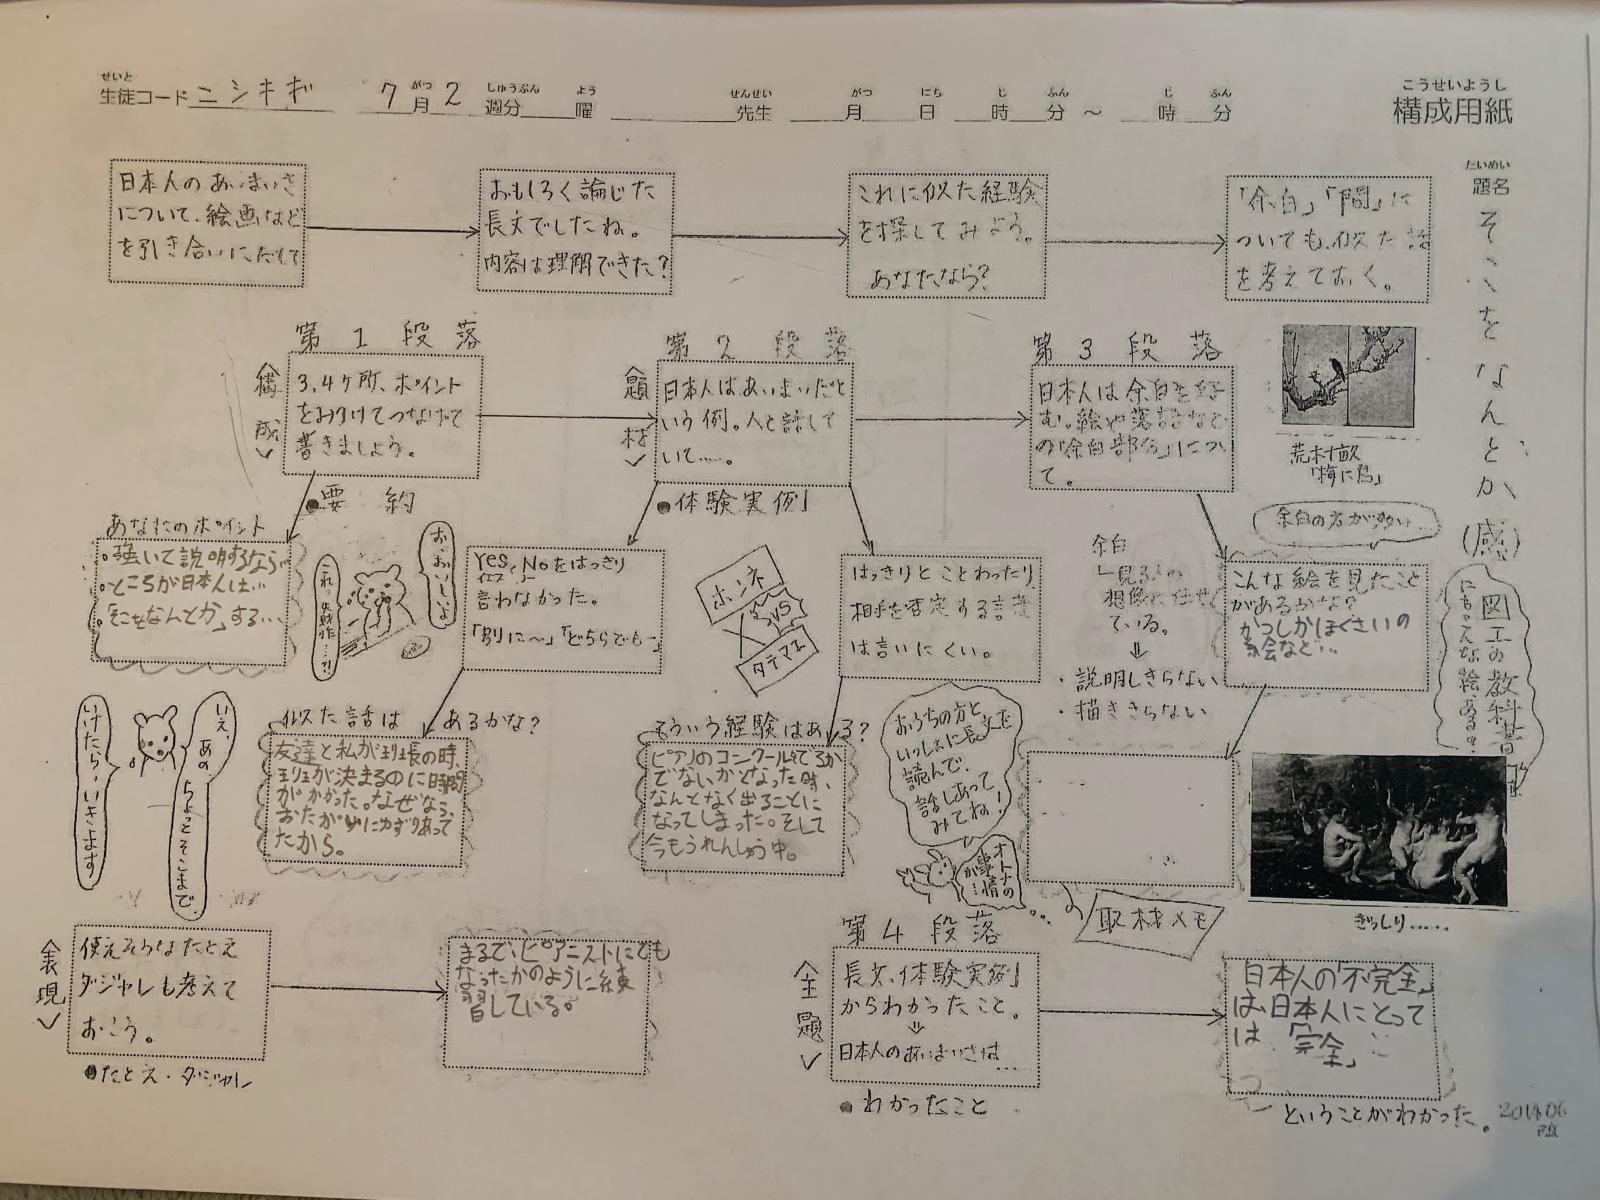 せいと がつ しゅうぶん よう せんせい がつ にち じ ふん じ ふん こうせいようし
生徒コード ニシキギ 7月2週分 曜 先生 月 日 時 分 〜 時 分 構成用紙
だいめい
題名
そこをなんとか(感)
日本人のあいまいさ
について、絵画など
を引き合いにだして
おもしろく論じた
長文でしたね。
内容は理解できた?
これに似た経験
を探してみよう。
あなたなら?
「余白」「間」に
ついても、似た話
を考えておく。
第1段落
<構成>
3,4ヶ所、ポイント
をみつけてつなげて
書きましょう。
●要約
あなたのポイント
○強いて説明するなら
○ところが日本人は…
○「そこをなんとか」する…
お、おいしいよ
これ、失敗作…?
第2段落
<題材>
日本人はあいまいだと
いう例。人と話して
いて……。
●体験実例
Yes, Noをはっきり
イエス ノー
言わなかった。
「別に〜」「どちらでも-」
ホンネ
VS
タテマエ
はっきりとことわったり
相手を否定する言葉
は言いにくい。
第3段落
日本人は余白を好
む。絵や落語など
の「余白部分」につい
て。
荒村畝
「梅に鳥」
余白の方が多い…
余白
見る人の
想像に任せ
ている。
⇓
・説明しきらない
・描ききらない
こんな絵を見たこと
があるかな?
かつしかほくさいの
絵など…
図工の教科書
にもこんな絵、ある?
いえ、あの
ちょっとそこまで、
いけたら・いきます
似た話は あるかな?
友達と私が班長の時、
班が決まるのに時間
がかかった。なぜなら、
おたがいにゆずりあって
たから。
そういう経験はある?
ピアノのコンクールにでるか
でないかとなった時、
なんとなく出ることに
なってしまった。そして
今もうれんしゅう中。
おうちの方と
いっしょに長文を
読んで、
話しあって
みてね!
オトナの
事情
が…
取材メモ
ぎっしり……
<表現>
使えそうなたとえ
ダジャレも考えて
おこう。
●たとえ・ダジャレ
まるで、ピアニストにでも
なったかのように練
習している。
第4段落
<主題>
長文、「体験実例」
からわかったこと。
⇓
日本人のあいまいさは……
●わかったこと
日本人の「不完全」
は、日本人にとって
は「完全」
ということがわかった。
2014.06